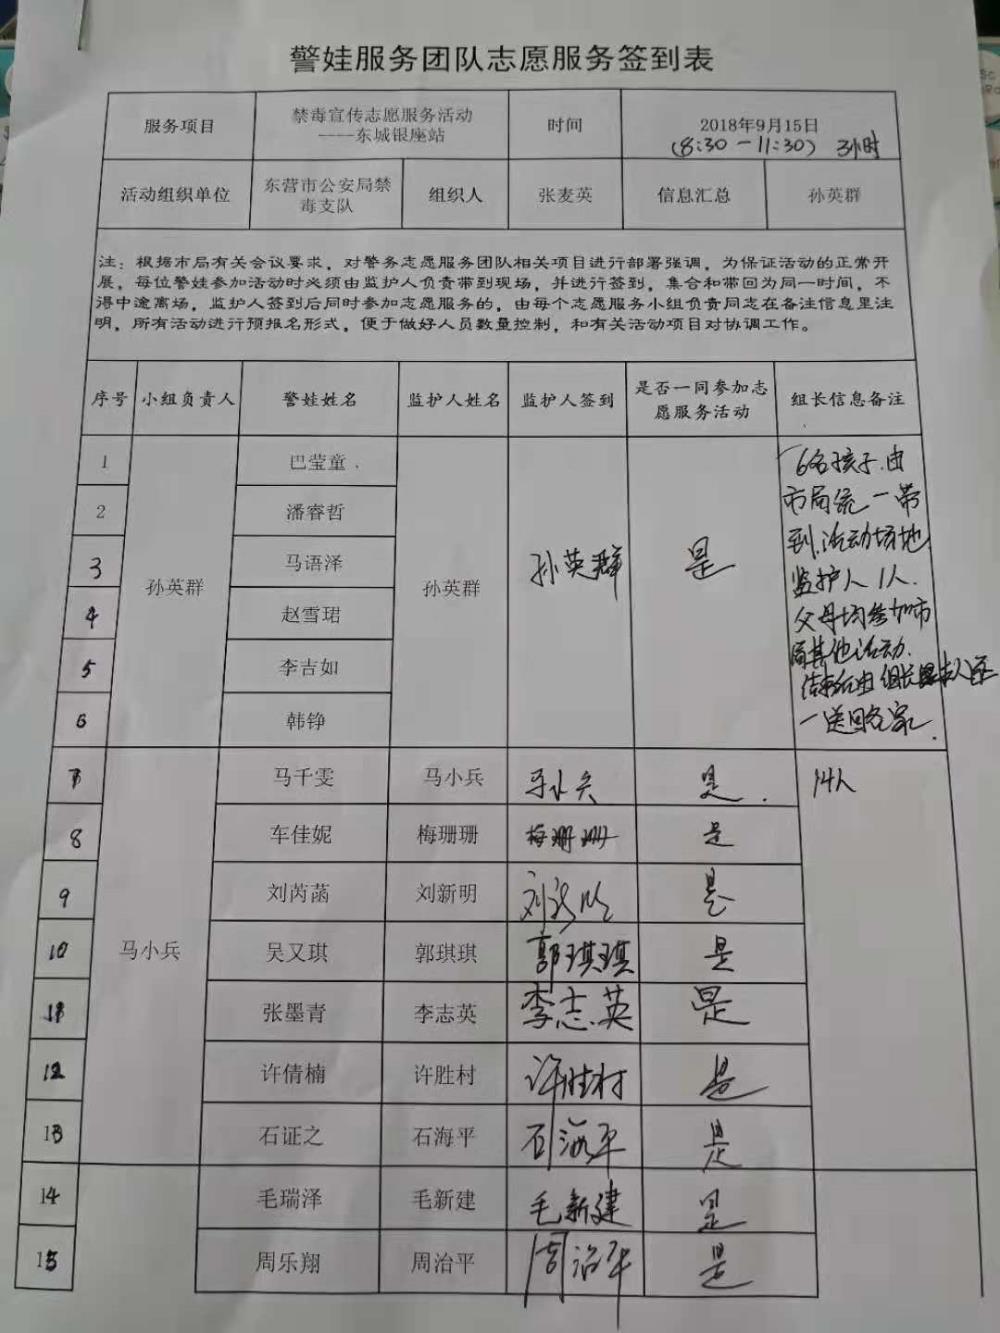 警娃服务团队志愿服务签到表
服务项目 禁毒宣传志愿服务活动 时间 2018年9月15日
----东城银座站 (8:30-11:30) 3小时
活动组织单位 东营市公安局禁 组织人 张麦英 信息汇总 孙英群
毒支队
注：根据市局有关会议要求，对警务志愿服务团队相关项目进行部署强调，为保证活动的正常开
展，每位警娃参加活动时必须由监护人负责带到现场，并进行签到，集合和带回为同一时间，不
得中途离场，监护人签到后同时参加志愿服务的，由每个志愿服务小组负责同志在备注信息里注
明，所有活动进行预报名形式，便于做好人员数量控制，和有关活动项目对协调工作。
序号 小组负责人 警娃姓名 监护人姓名 监护人签到 是否一同参加志 组长信息备注
愿服务活动
1 巴莹童
2 潘睿哲
3 马语泽
孙英群 孙英群 孙英群 是
4 赵雪珺
5 李吉如
6 韩铮
6名孩子.由
市局统一带
到活动场地
监护人1人.
父母均参加市
局其他活动.
结束后由组长
一送回各家.
7 马千雯 马小兵 马小兵 是. 14人
8 车佳妮 梅珊珊 梅珊珊 是
9 刘芮菡 刘新明 刘新明 是
10 马小兵 吴又琪 郭琪琪 郭琪琪 是
11 张墨青 李志英 李志英 是
12 许倩楠 许胜村 许胜村 是
13 石证之 石海平 石海平 是
14 毛瑞泽 毛新建 毛新建 是
15 周乐翔 周治平 周治平 是